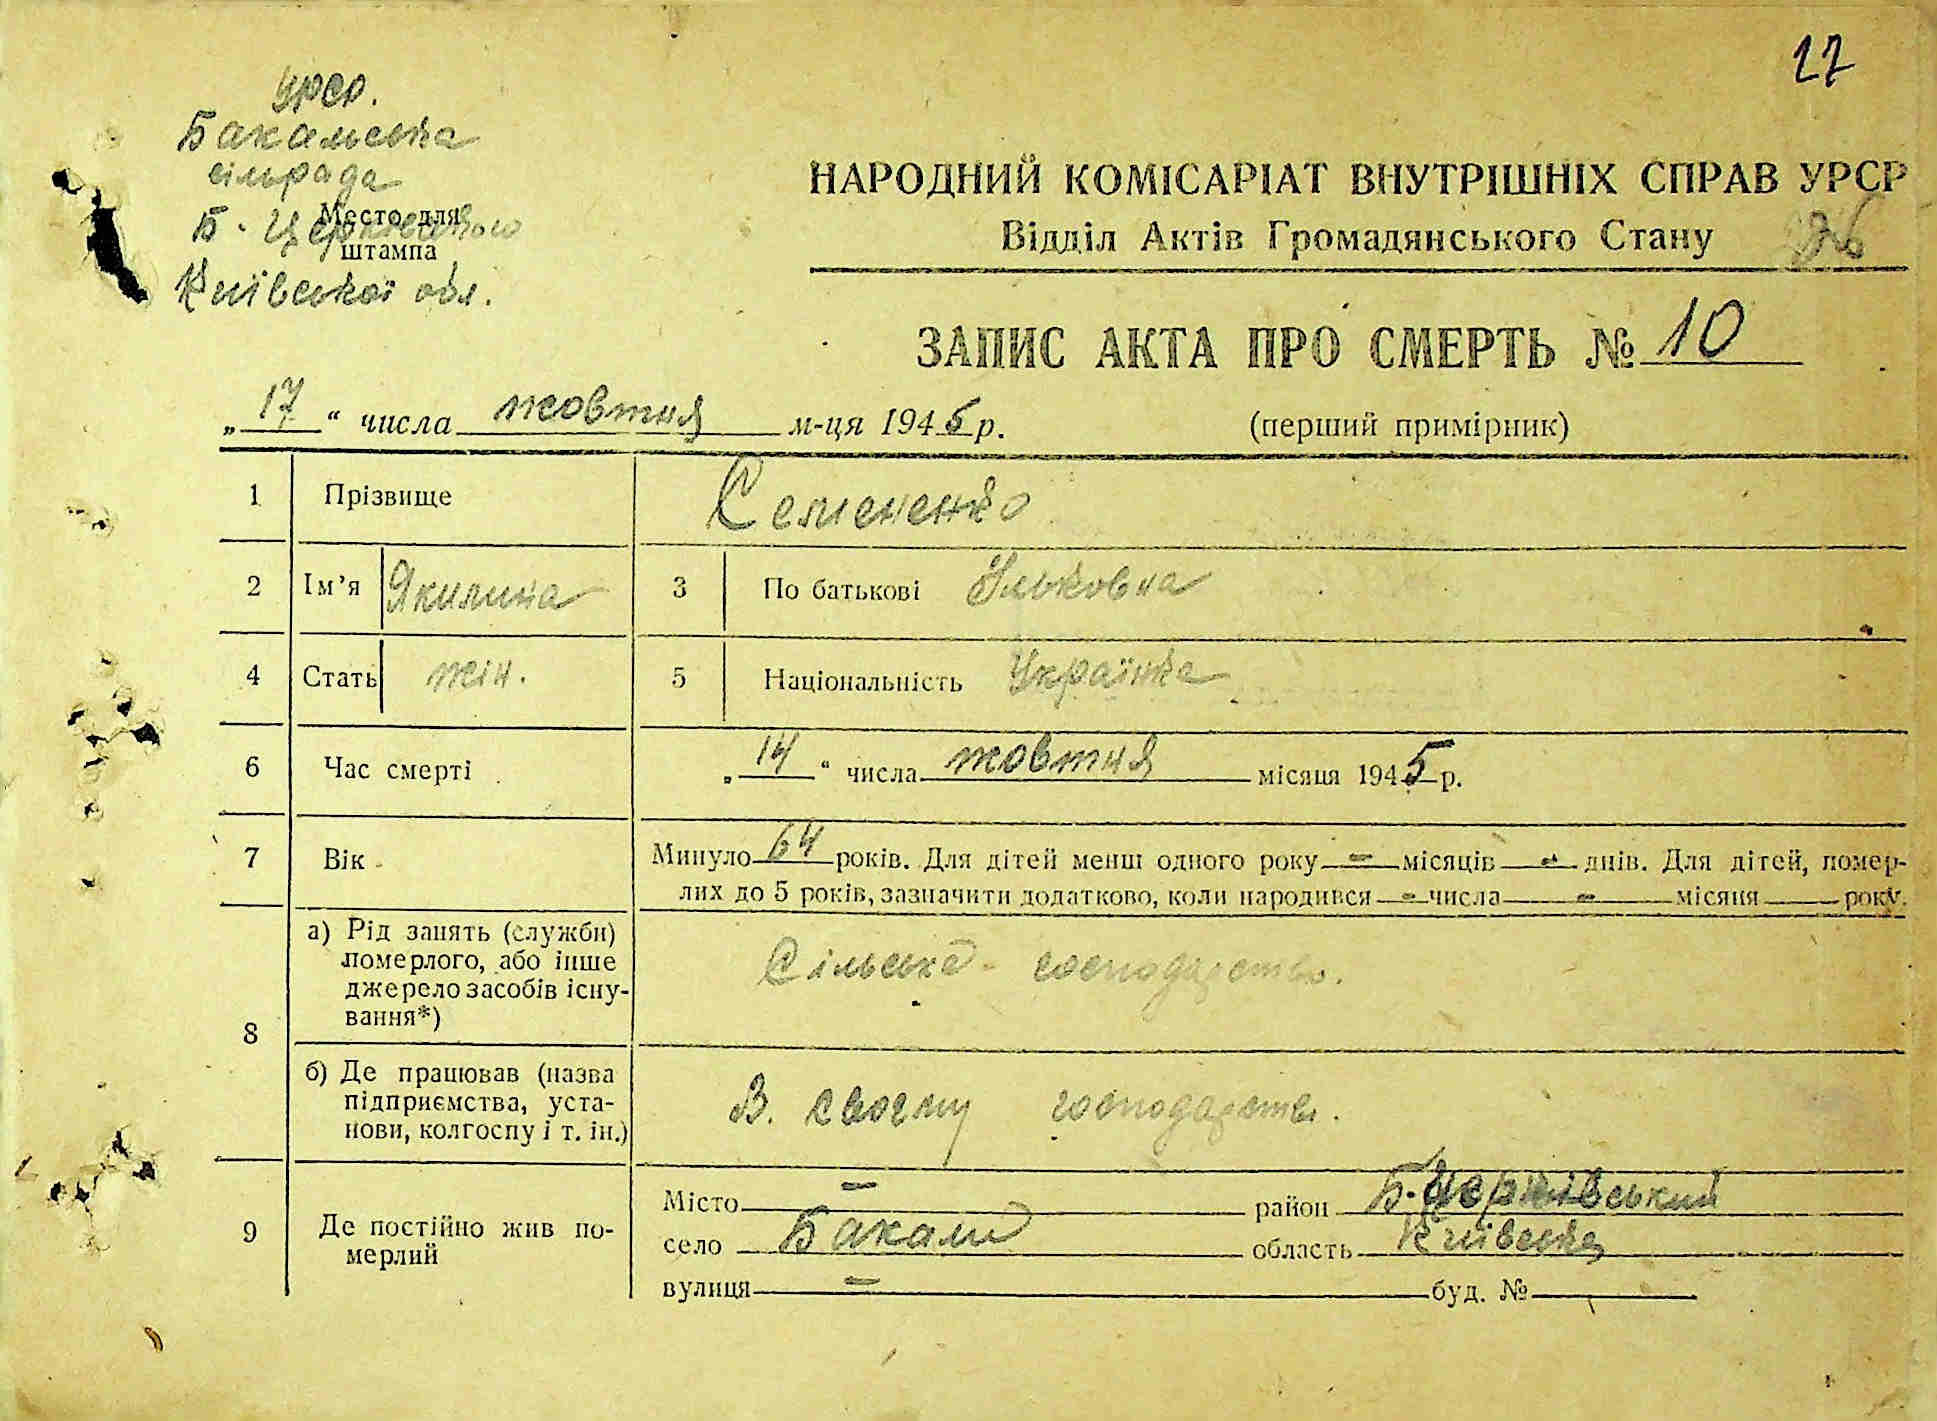 27
УРСР.
Бакалська
сільрада
Место для
Б. Церковського
штампа
Київської обл.
НАРОДНИЙ КОМІСАРІАТ ВНУТРІШНІХ СПРАВ УРСР
Відділ Актів Громадянського Стану
ЗАПИС АКТА ПРО СМЕРТЬ № 10
„ 17 “ числа жовтня м-ця 1945 р. (перший примірник)
1 Прізвище Семененко
2 Ім’я Якилина 3 По батькові Ільковна
4 Стать жін. 5 Національність Українка
6 Час смерті „ 14 “ числа жовтня місяця 1945 р.
7 Вік Минуло 64 років. Для дітей менш одного року - місяців - днів. Для дітей, помер-
лих до 5 років, зазначити додатково, коли народився - числа - місяця року.
8 а) Рід занять (служби)
померлого, або інше
джерело засобів існу-
вання*)
Сільське господарство.
б) Де працював (назва
підприємства, уста-
нови, колгоспу і т. ін.)
В своєму господарстві.
9 Де постійно жив по-
мерлий
Місто — район Б-Церківський
село Бакали область Київська
вулиця — буд. №